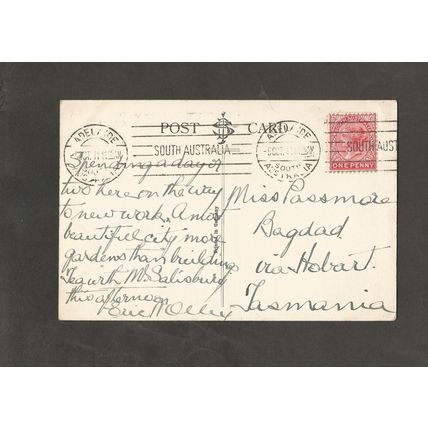 POST CARD
ADELAIDE
SOUTH AUSTRALIA
ADELAIDE
SOUTH AUSTRALIA
SOUTH AUST
ONE PENNY
Spending a day or
two here on the way
to new work. A most
beautiful city more
gardens than building
Tea with Mr Salisbury
this afternoon
Eric W
Printed in Germany
Miss Passmore
Bagdad
via Hobart.
Tasmania